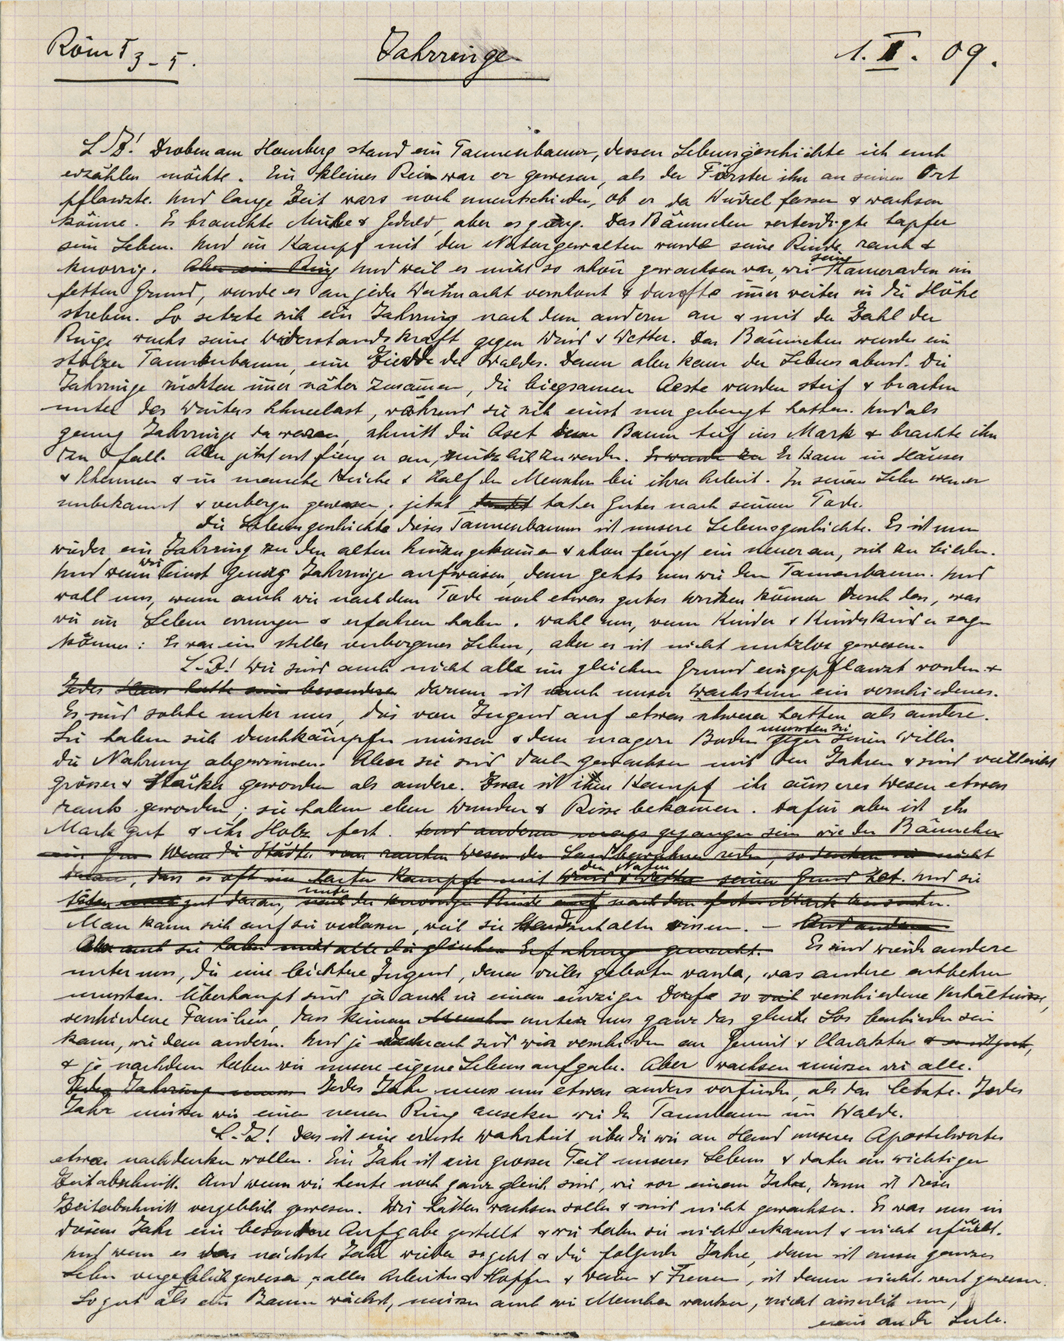 Röm 5 3-5. Jahrringe 1. I. 09.
L. Z! Droben am Homberg stand ein Tannenbaum, dessen Lebensgeschichte ich euch
erzählen möchte. Ein kleines Reis war er gewesen, als der Förster ihn an seinen Ort
pflanzte. Und lange Zeit wars noch unentschieden, ob er da Wurzel fassen & wachsen
könne. Es brauchte Mühe & Geduld, aber es ging. Das Bäumchen verteidigte tapfer
sein Leben. Und im Kampf mit den Naturgewalten wurde seine Rinde rauh &
knorrig. Aber ein Ring Und weil es nicht so schön gewachsen war, wie seine Kameraden im
fetten Grund, wurde es an jeder Weihnacht verschont & durfte immer weiter in die Höhe
streben. So setzte sich ein Jahrring nach dem andern an & mit der Zahl der
Ringe wuchs seine Widerstandskraft gegen Wind & Wetter. Das Bäumchen wurde ein
stolzer Tannenbaum, eine Zierde des Waldes. Dann aber kam der Lebensabend. Die
Jahrringe rückten immer näher zusammen, die biegsamen Aeste wurden steif & brachen
unter des Winters Schneelast, während sie sich einst nur gebeugt hatten. Und als
genug Jahrringe da waren, schnitt die Axt dem Baum tief ins Mark & brachte ihn
zu Fall. Aber jetzt erst fieng er an, nützlich zu werden. Er wurde zu Er kam in Häuser
& Scheunen & in manche Küche & half den Menschen bei ihrer Arbeit. In seinem Leben war er
unbekannt & verborgen gewesen, jetzt tat er Gutes nach seinem Tode.
Die Lebensgeschichte dieses Tannenbaums ist unsere Lebensgeschichte. Es ist nun
wieder ein Jahrring zu den alten hinzugekommen & schon fängt ein neuer an, sich zu bilden.
Und wenn wir einst genug Jahrringe aufweisen, dann gehts uns wie dem Tannenbaum. Und
wohl uns, wenn auch wir nach dem Tode noch etwas gutes wirken können durch das, was
wir im Leben errungen & erfahren haben. Wohl uns, wenn Kinder & Kindeskinder sagen
können: Es war ein stilles verborgenes Leben, aber es ist nicht nutzlos gewesen.
L. Z! Wir sind auch nicht alle im gleichen Grund eingepflanzt worden &
Jedes Haus hatte sein besonderes darum ist auch unser Wachstum ein verschiedenes.
Es sind solche unter uns, die von Jugend auf etwas schwerer hatten als andere.
Sie haben sich durchkämpfen müssen & dem magern Boden mussten sie gegen seinen Willen
die Nahrung abgewinnen. Aber sie sind doch gewachsen mit den Jahren & sind vielleicht
grösser & stärker geworden als andere. Zwar ist im Kampf ihr äusseres Wesen etwas
rauh geworden: sie haben eben Wunden & Risse bekommen. Dafür aber ist ihr
Mark gut & ihr Holz fest. Und andern mags gegangen sein wie den Bäumchen
Wenn die Städter vom rauhen Wesen der Landbewohner reden, so denken sie nicht
daran, dass es oft im harten Kampfe mit der Natur Wind & Wetter seinen Grund hat. Und sie
täten gut daran, unter der knorrigen Rinde nach dem guten Mark zu suchen.
Man kann sich auf sie verlassen, weil sie standzuhalten wissen. – Und andern
Aber auch sie haben nicht alle die gleichen Erfahrung gemacht. Es sind wieder andere
unter uns, die eine leichtere Jugend, denen vieles geboten wurde, was andere entbehren
mussten. Überhaupt sind ja auch in einem einzigen Dorfe so viel verschiedene Verhältnisse,
verschiedene Familien, dass keinem Menschen unter uns ganz das gleiche Los beschieden sein
kann, wie dem andern. Und je nach sind wir verschieden an Gemüt & Charakter
& je nachdem haben wir unsere eigene Lebensaufgabe. Aber wachsen müssen wir alle.
Jeder Jahrring muss Jedes Jahr muss uns etwas anders vorfinden, als das letzte. Jedes
Jahr müssen wir einen neuen Ring ansetzen wie der Tannbaum im Walde.
L. Z! Das ist eine ernste Wahrheit, über die wir an Hand unseres Apostelwortes
etwas nachdenken wollen. Ein Jahr ist ein grosser Teil unseres Lebens & daher ein wichtiger
Zeitabschnitt. Und wenn wir heute noch ganz gleich sind, wie vor einem Jahre, dann ist dieser
Zeitabschnitt vergeblich gewesen. Wir hätten wachsen sollen & sind nicht gewachsen. Es war uns in
diesem Jahr ein besondere Aufgabe gestellt & wir haben sie nicht erkannt & nicht erfüllt.
Und wenn es das nächste Jahr wieder so geht & die folgenden Jahre, dann ist unser ganzes
Leben vergeblich gewesen, & alles Arbeiten & Hoffen & Weinen & Freuen, ist dann nichts wert gewesen.
So gut als ein Baum wächst, müssen auch wir Menschen wachsen, nicht äusserlich nur,
nein an der Seele.